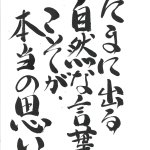 たまに出る
自然な言葉
こそが、
本当の思い